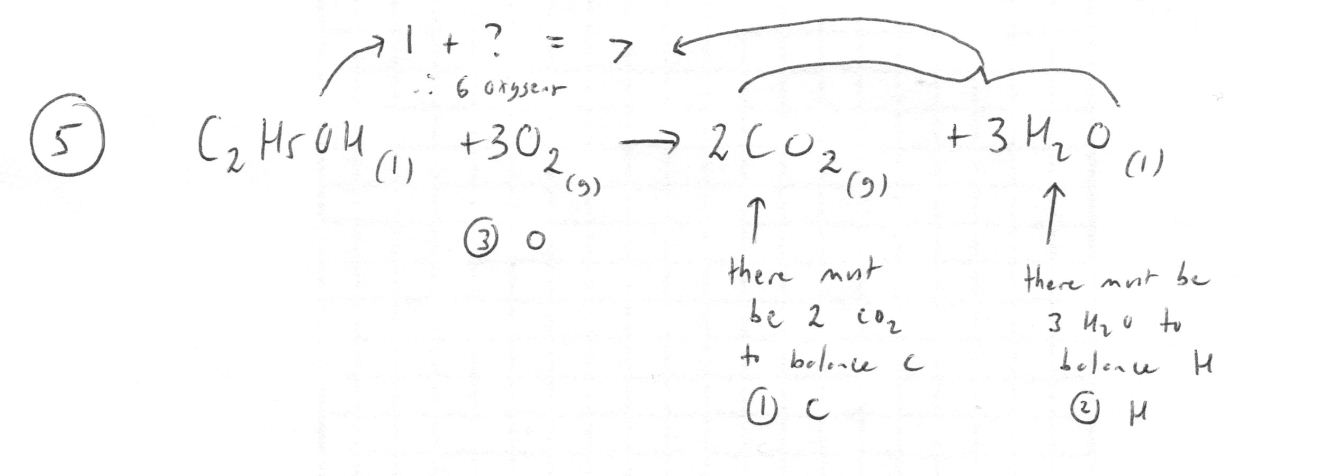 1 + ? = 7
∴ 6 oxygens
⑤ C₂H₅OH (l) + 3O₂ (g) → 2CO₂ (g) + 3H₂O (l)
③ O
there must
be 2 CO₂
to balance C
① C
there must be
3 H₂O to
balance H
② H